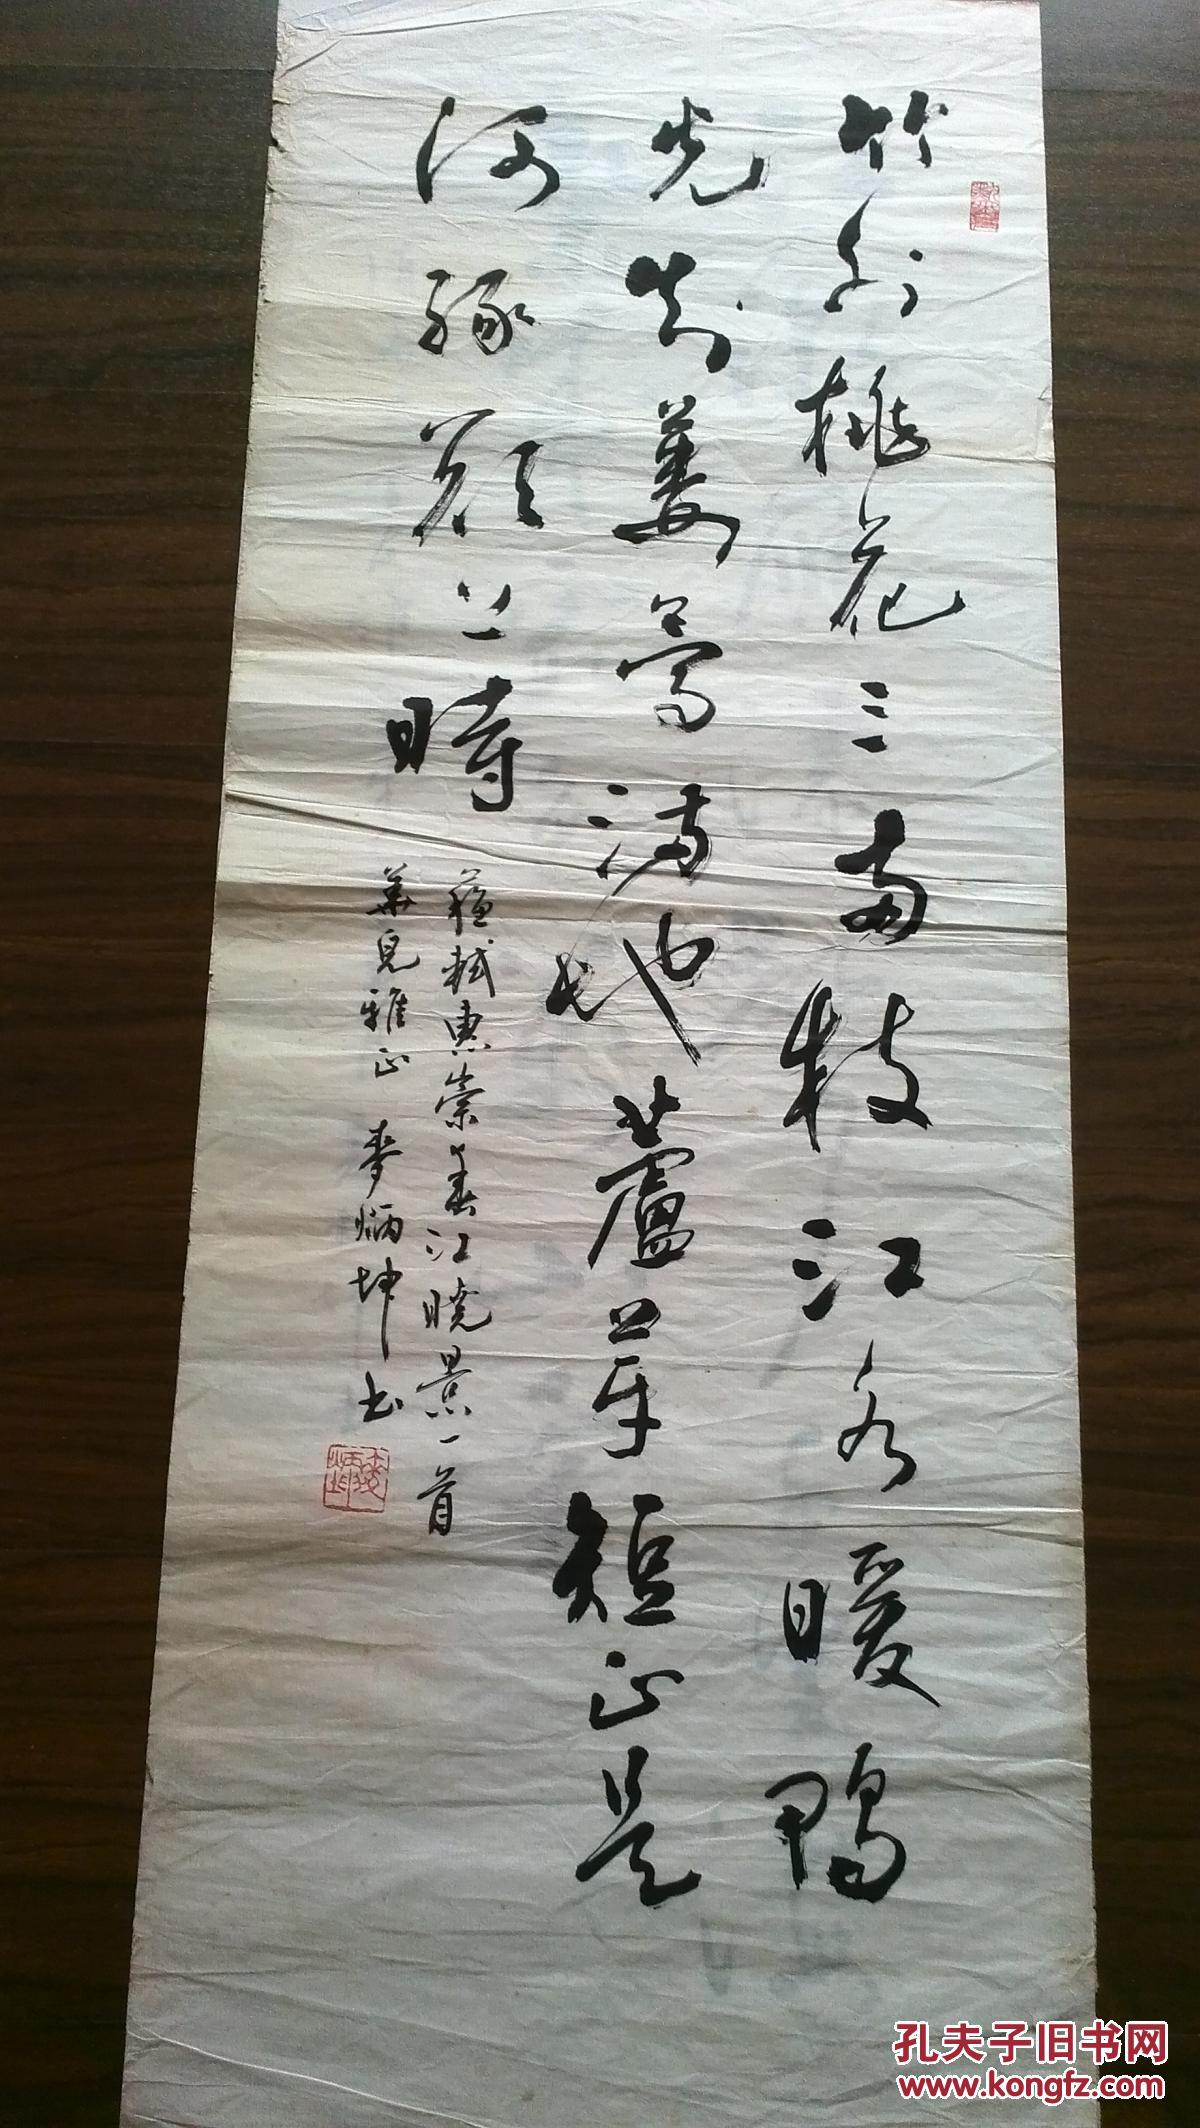 竹外桃花三兩枝江水暖鴨
先知蔞蒿滿地蘆芽短正是
河豚欲上時
蘇軾惠崇春江曉景一首
華兄雅正 麥炳坤书
孔夫子旧书网
www.kongfz.com